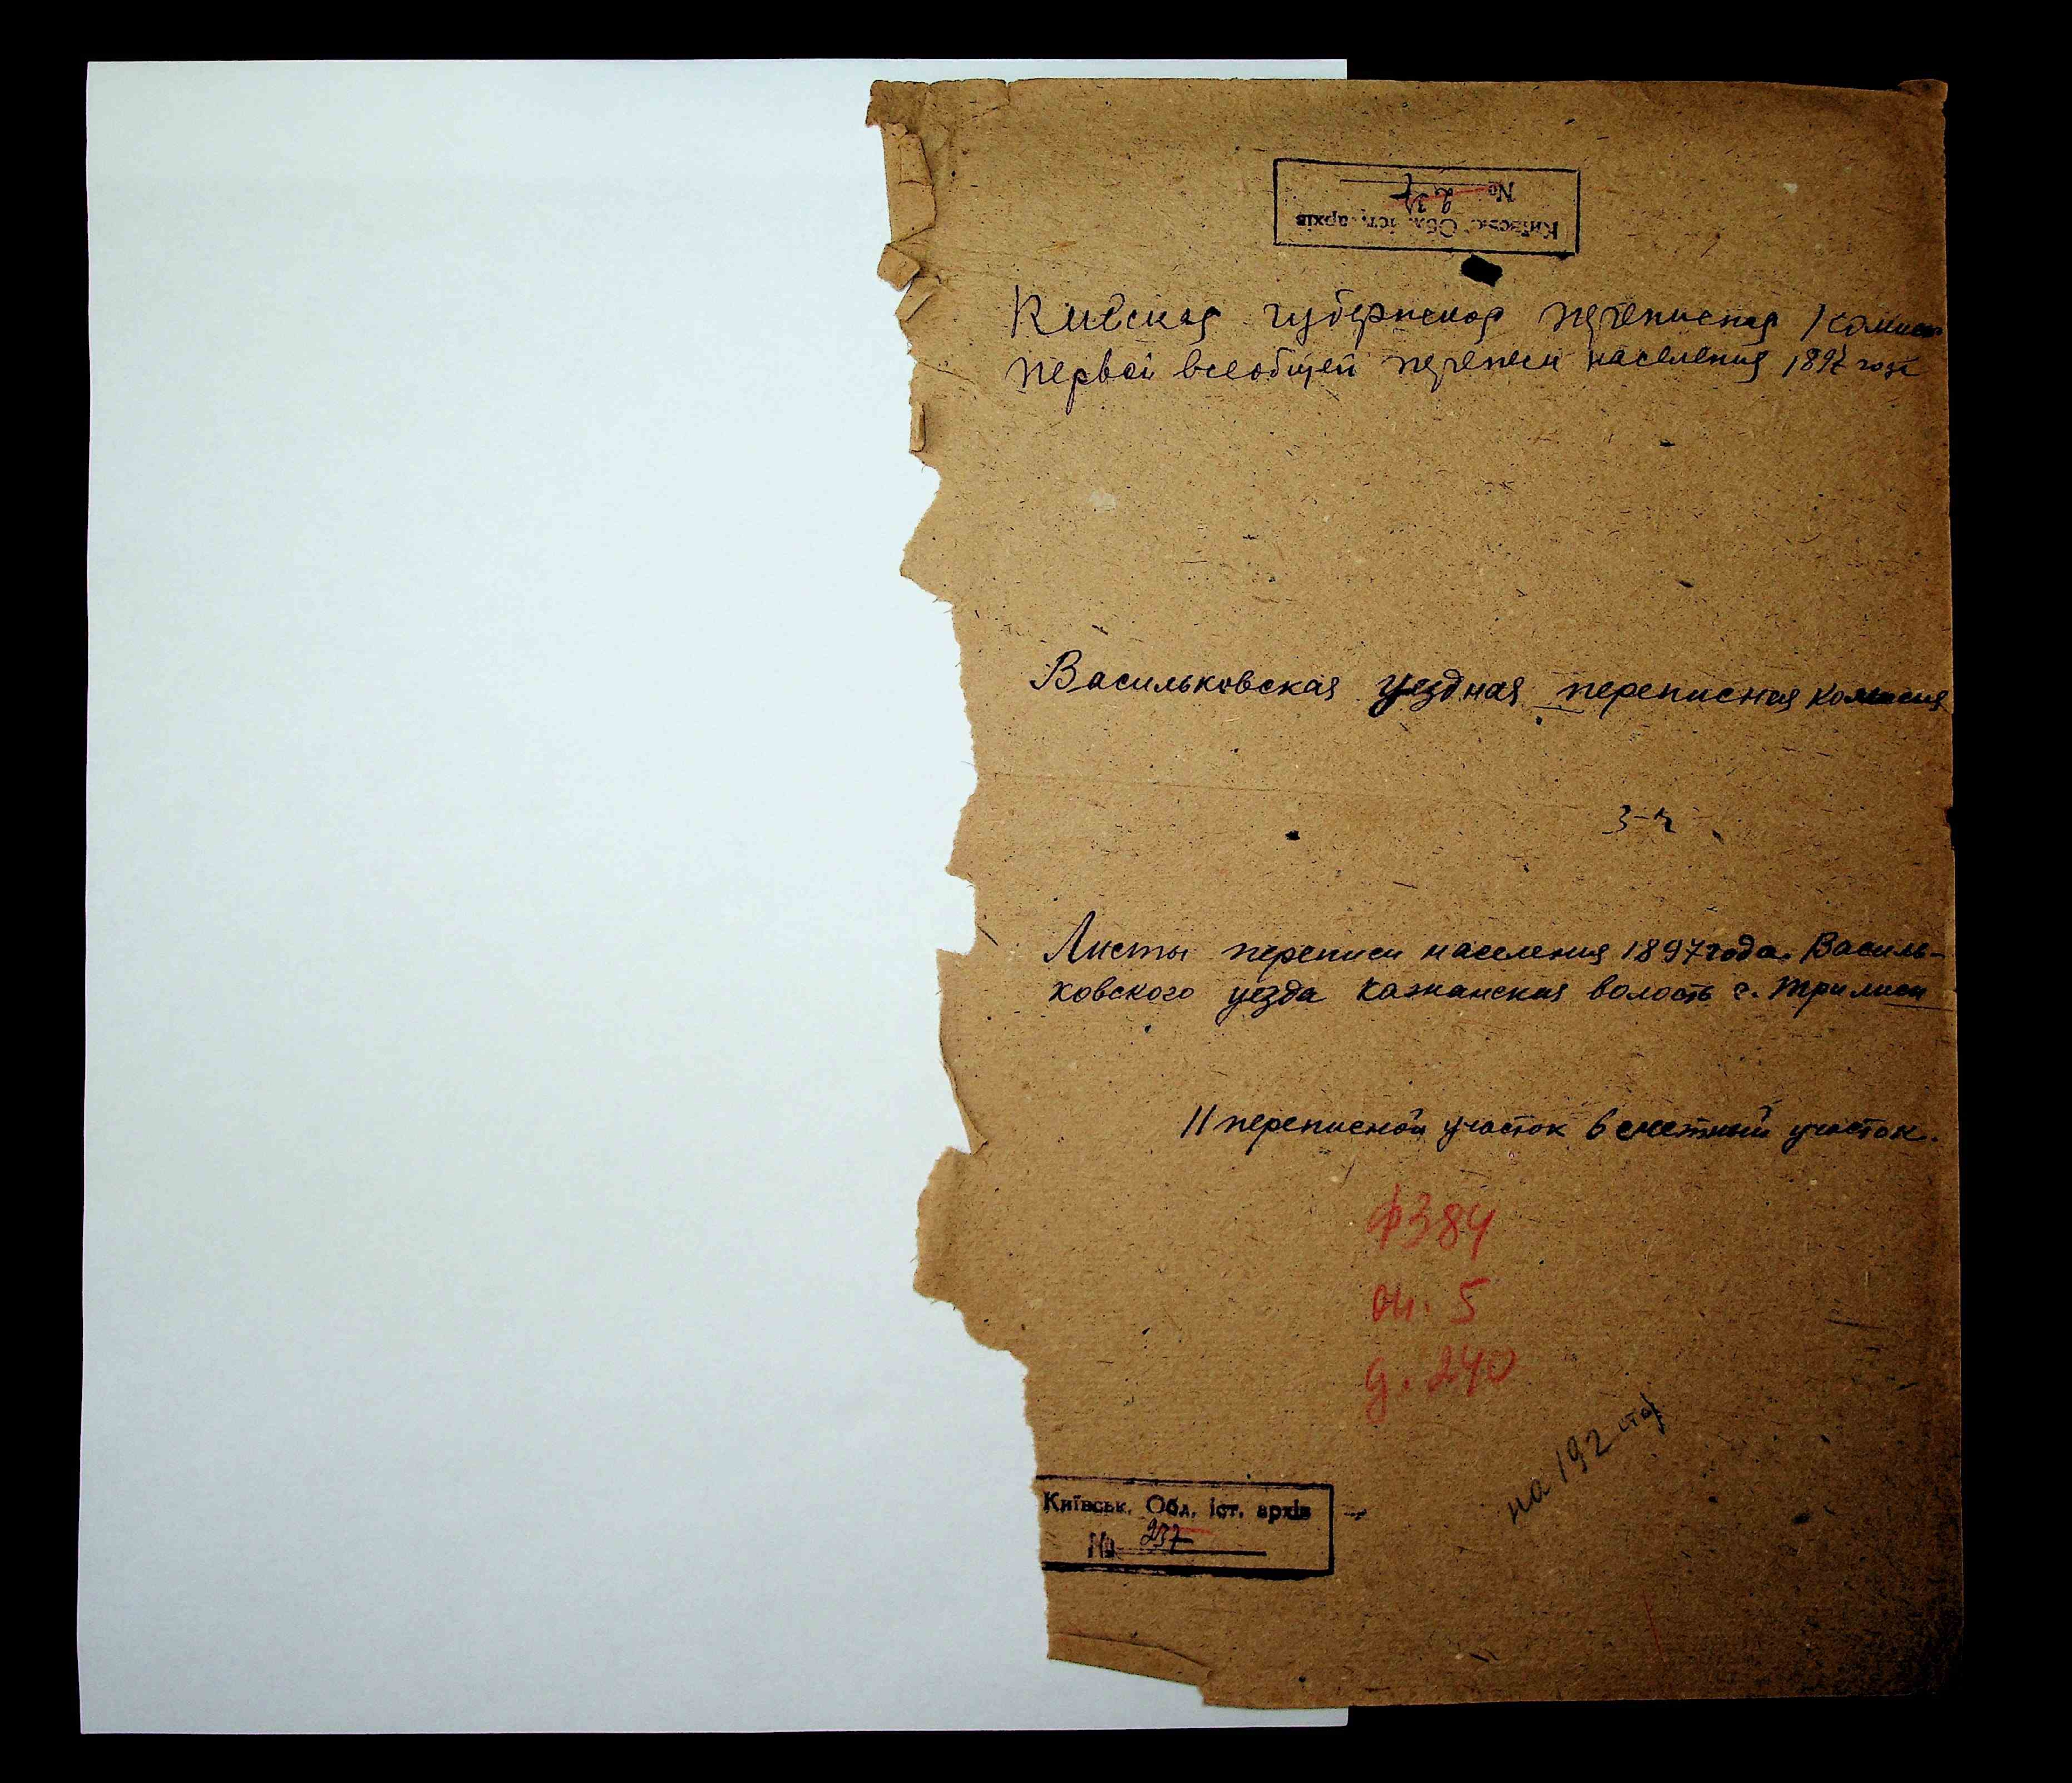 Київськ. Обл. іст. архів
№ 237
Киевская губернская переписная комисия
первой всеобщей переписи населения 1897 года
Васильковская уездная переписная комисия
Листы переписи населения 1897 года. Василь-
ковского уезда Кажанская волость с. Трилиси
11 переписной участок 6 счетный участок.
ф 384
оп. 5
д. 240
на 192 стор
Київськ. Обл. іст. архів
№ 237